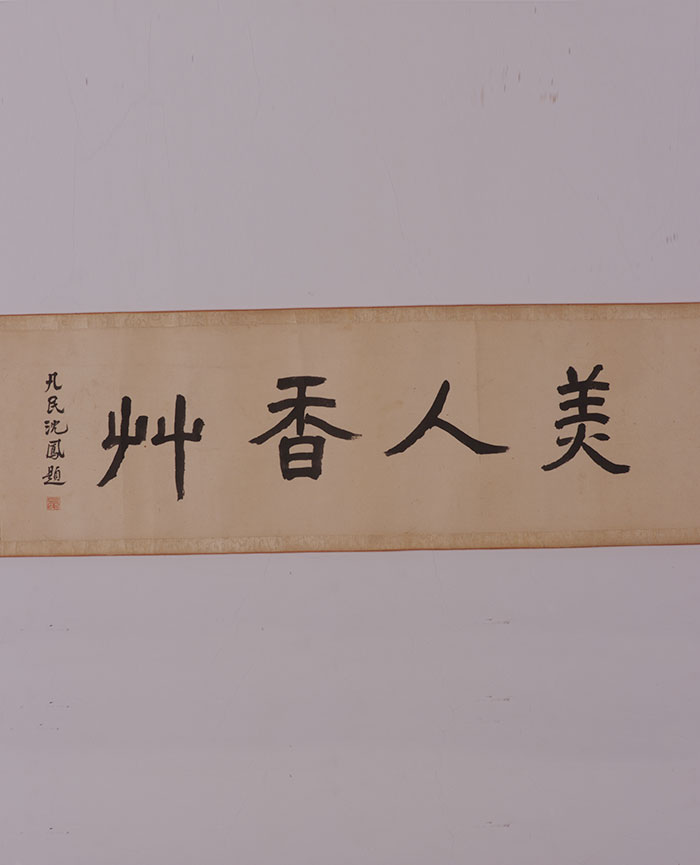 美人香艸
凡民沈鳳題